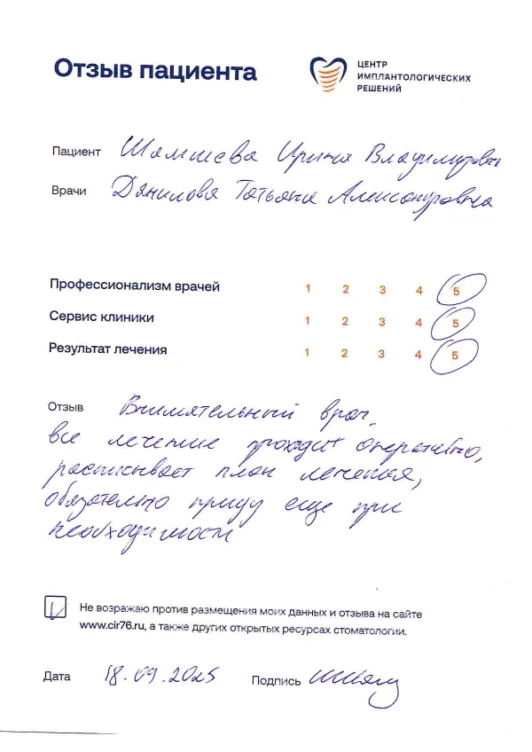 Отзыв пациента
ЦЕНТР
ИМПЛАНТОЛОГИЧЕСКИХ
РЕШЕНИЙ
Пациент Шамшева Ирина Владимировна
Врачи Данилова Татьяна Александровна
Профессионализм врачей 1 2 3 4 5
Сервис клиники 1 2 3 4 5
Результат лечения 1 2 3 4 5
Отзыв Внимательный врач,
все лечение проходит оперативно,
расписывает план лечения,
обязательно приду еще при
необходимости
Не возражаю против размещения моих данных и отзыва на сайте
www.cir76.ru, а также других открытых ресурсах стоматологии.
Дата 18.09.2025 Подпись